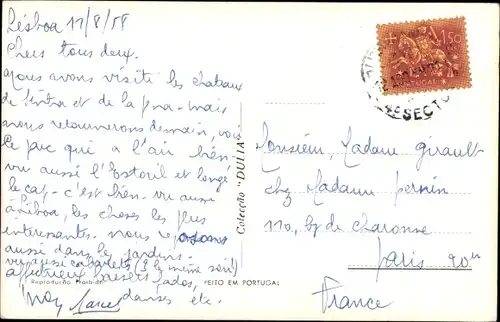 Lisboa 11/8/58
Chers tous deux.
Nous avons visité les chateaux
de Sintra et de la pena. mais
nous retournerons demain, voir
le parc qui a l'air bien.
vu aussi l'Estoril et longé
le cap. c'est bien. vu aussi
à Lisboa, les choses les plus
interessantes. nous reposons
aussi dans les jardins.
vu aussi cabarets (3 le même soir)
affectueux baisers fados,
danses etc.
Reprodução Proibida
FEITO EM PORTUGAL
Colecção "DULIA"
1$50
CORREIO
PORTUGAL
4ª SECÇ
Monsieur, Madame Girault
chez Madame Perrin
110, bd de Charonne
Paris 20e
France